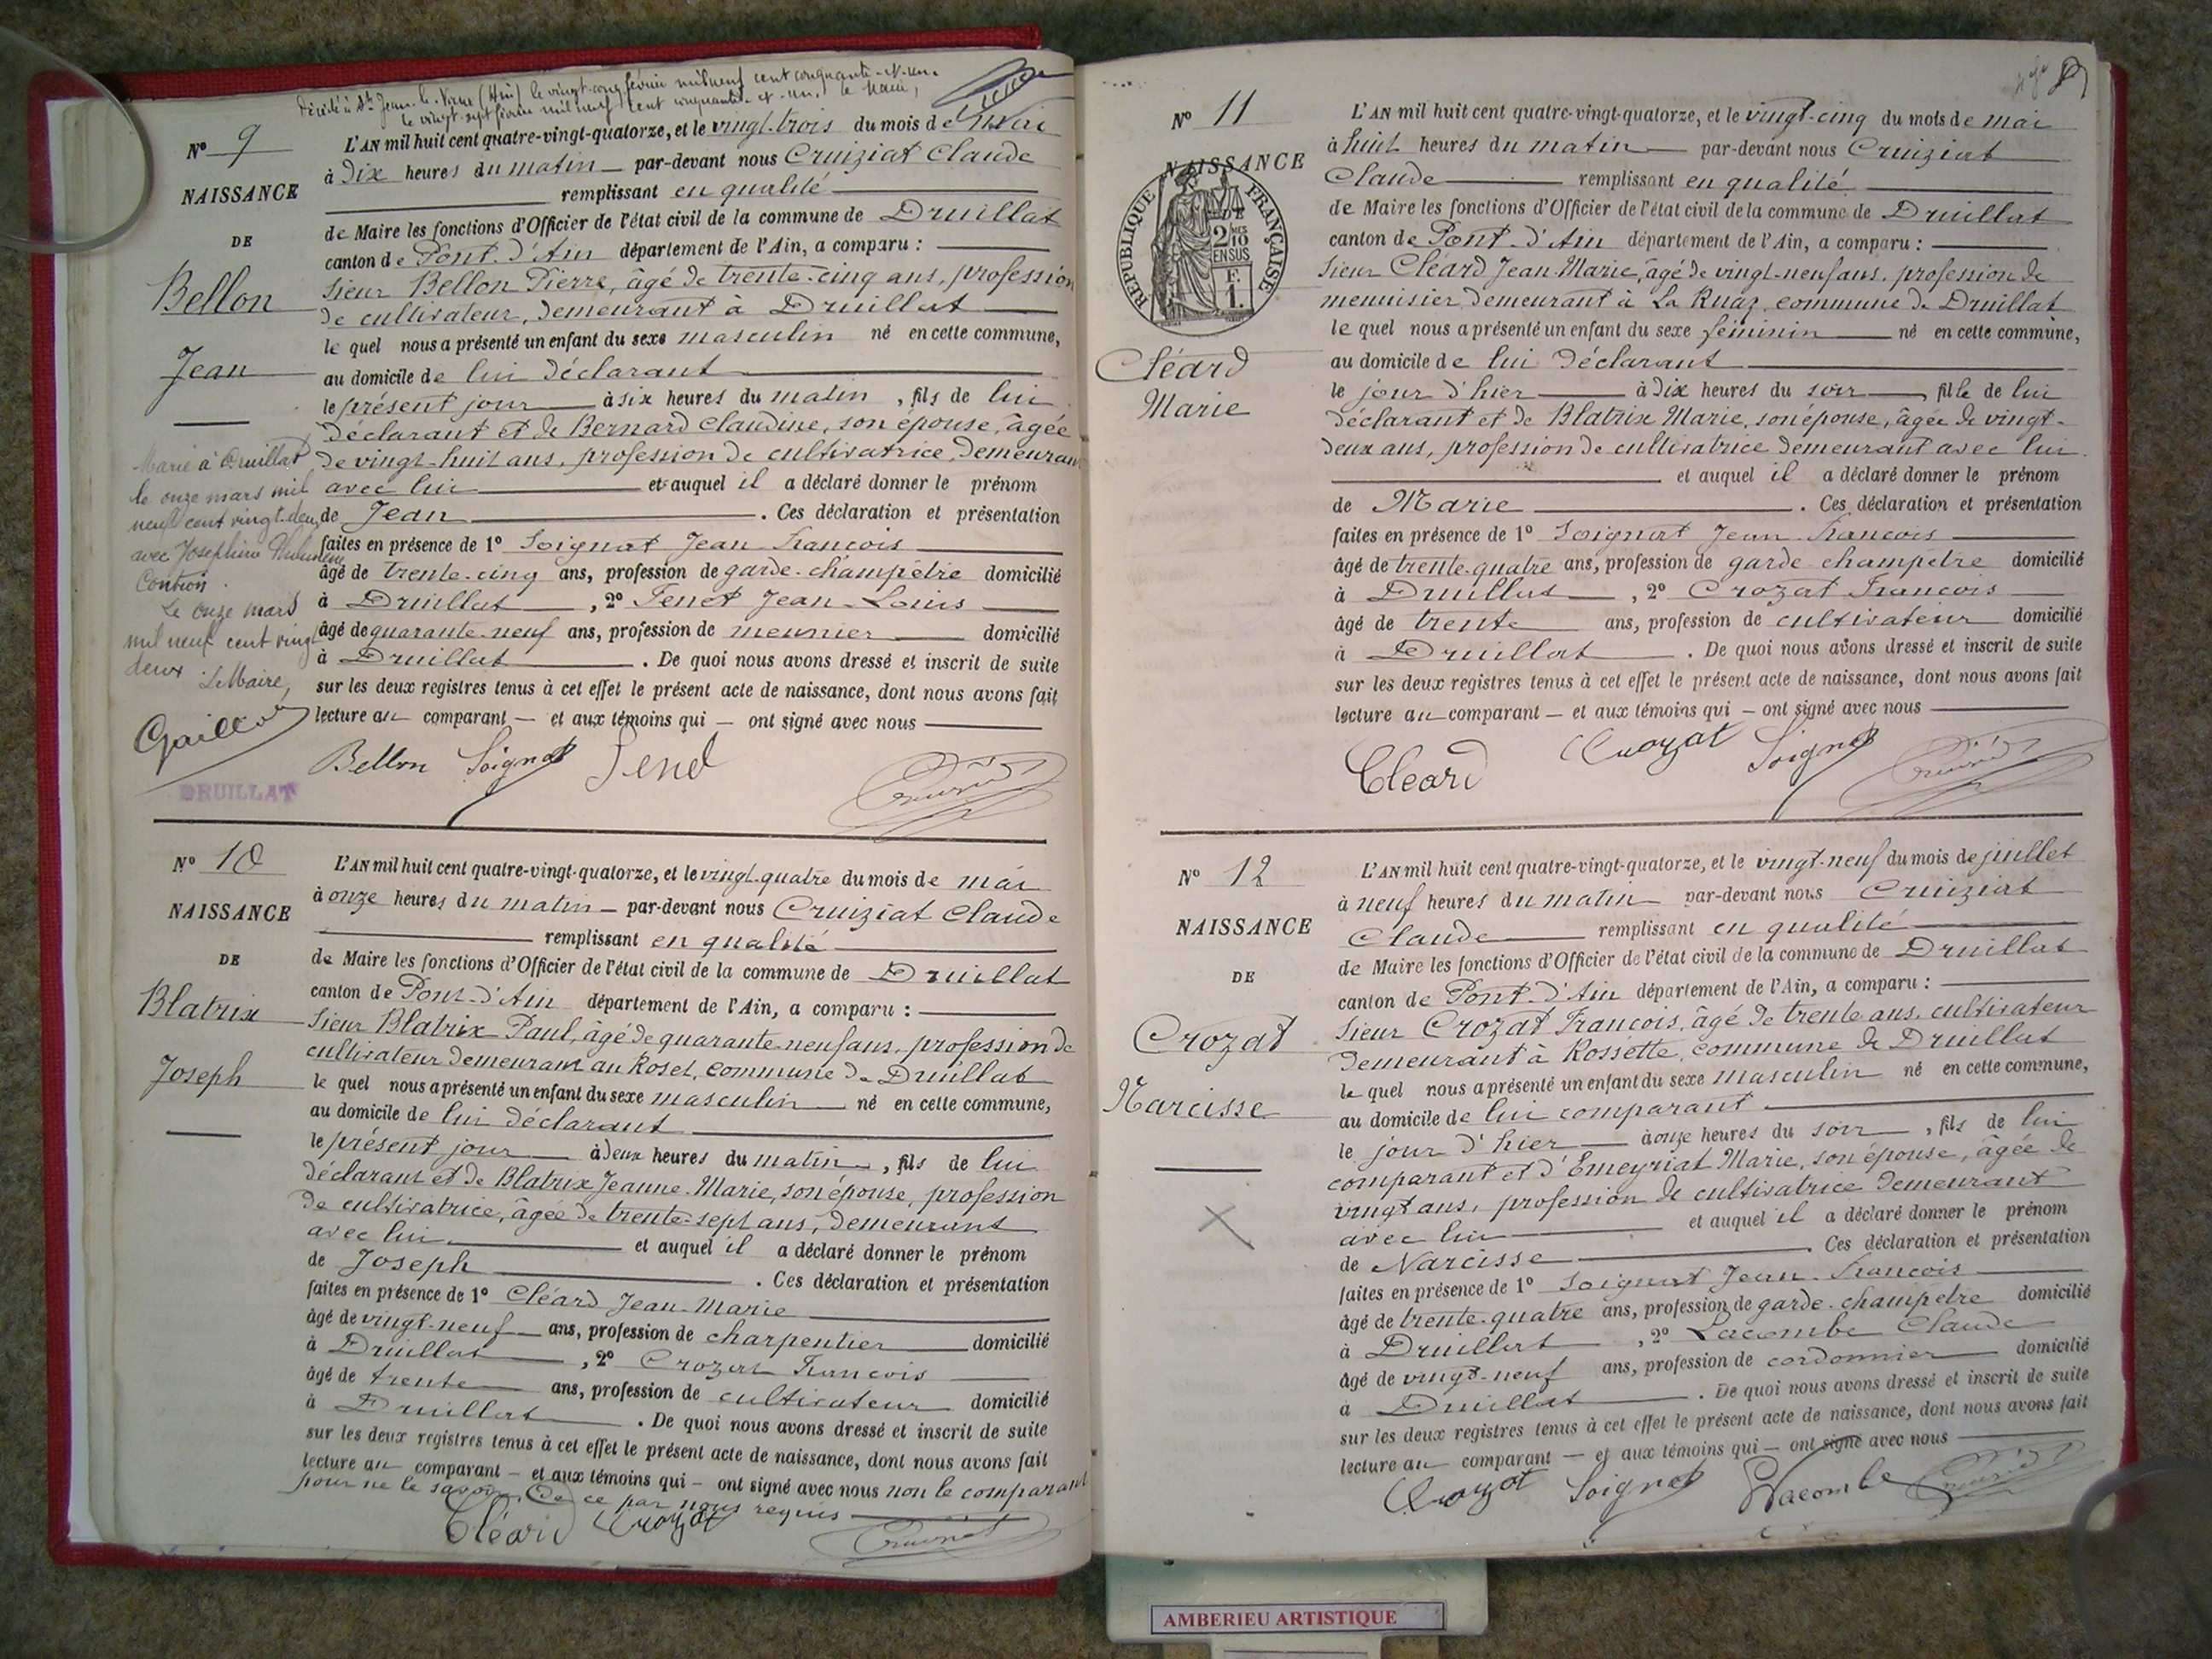 Décédé à St Jean-le-Vieux (Ain) le vingt-cinq février mil neuf cent cinquante-et-un.
le vingt-sept février mil neuf cent cinquante-et-un. le Maire,
N° 9
NAISSANCE
DE
Bellon
Jean
Marié à Druillat
le onze mars mil
neuf cent vingt-deux
avec Joséphine
Le onze mars
mil neuf cent vingt
deux Le Maire,
DRUILLAT
L'AN mil huit cent quatre-vingt-quatorze, et le vingt-trois du mois de Mai
à Dix heures du matin — par-devant nous Cruiziat Claude
remplissant en qualité
de Maire les fonctions d'Officier de l'état civil de la commune de Druillat
canton de Pont-d'Ain département de l'Ain, a comparu :
Sieur Bellon Pierre, âgé de trente-cinq ans, profession
de cultivateur, demeurant à Druillat
le quel nous a présenté un enfant du sexe masculin né en cette commune,
au domicile de lui déclarant
le présent jour à six heures du matin, fils de lui
déclarant et de Bernard Claudine, son épouse, âgée
de vingt-huit ans, profession de cultivatrice, demeurant
avec lui et auquel il a déclaré donner le prénom
de Jean. Ces déclaration et présentation
faites en présence de 1° Soignat Jean François
âgé de trente-cinq ans, profession de garde-champêtre domicilié
à Druillat, 2° Tenet Jean-Louis
âgé de quarante-neuf ans, profession de meunier domicilié
à Druillat. De quoi nous avons dressé et inscrit de suite
sur les deux registres tenus à cet effet le présent acte de naissance, dont nous avons fait
lecture au comparant — et aux témoins qui — ont signé avec nous
Bellon Soignat
N° 10
NAISSANCE
DE
Blatrix
Joseph
L'AN mil huit cent quatre-vingt-quatorze, et le vingt-quatre du mois de mai
à onze heures du matin — par-devant nous Cruiziat Claude
remplissant en qualité
de Maire les fonctions d'Officier de l'état civil de la commune de Druillat
canton de Pont-d'Ain département de l'Ain, a comparu :
Sieur Blatrix Paul, âgé de quarante-neuf ans, profession de
cultivateur demeurant au Roset, commune de Druillat
le quel nous a présenté un enfant du sexe masculin né en cette commune,
au domicile de lui déclarant
le présent jour à deux heures du matin, fils de lui
déclarant et de Blatrix Jeanne-Marie, son épouse, profession
de cultivatrice, âgée de trente-sept ans, demeurant
avec lui et auquel il a déclaré donner le prénom
de Joseph. Ces déclaration et présentation
faites en présence de 1° Cléard Jean-Marie
âgé de vingt-neuf ans, profession de charpentier domicilié
à Druillat, 2° Crozat François
âgé de trente ans, profession de cultivateur domicilié
à Druillat. De quoi nous avons dressé et inscrit de suite
sur les deux registres tenus à cet effet le présent acte de naissance, dont nous avons fait
lecture au comparant — et aux témoins qui — ont signé avec nous non le comparant
pour ne le savoir. De ce par nous requis
Cléard Crozat
N° 11
NAISSANCE
DE
RÉPUBLIQUE FRANÇAISE
2/10 EN SUS
F. 1.
Cléard
Marie
L'AN mil huit cent quatre-vingt-quatorze, et le vingt-cinq du mois de mai
à huit heures du matin — par-devant nous Cruiziat
Claude remplissant en qualité
de Maire les fonctions d'Officier de l'état civil de la commune de Druillat
canton de Pont-d'Ain département de l'Ain, a comparu :
Sieur Cléard Jean-Marie, âgé de vingt-neuf ans, profession de
menuisier demeurant à La Ruaz, commune de Druillat
le quel nous a présenté un enfant du sexe féminin né en cette commune,
au domicile de lui déclarant
le jour d'hier à dix heures du soir, fille de lui
déclarant et de Blatrix Marie, son épouse, âgée de vingt-
deux ans, profession de cultivatrice demeurant avec lui.
et auquel il a déclaré donner le prénom
de Marie. Ces déclaration et présentation
faites en présence de 1° Soignat Jean-François
âgé de trente-quatre ans, profession de garde champêtre domicilié
à Druillat, 2° Crozat François
âgé de trente ans, profession de cultivateur domicilié
à Druillat. De quoi nous avons dressé et inscrit de suite
sur les deux registres tenus à cet effet le présent acte de naissance, dont nous avons fait
lecture au comparant — et aux témoins qui — ont signé avec nous
Cléard Crozat Soignat
N° 12
NAISSANCE
DE
Crozat
Narcisse
L'AN mil huit cent quatre-vingt-quatorze, et le vingt-neuf du mois de juillet
à neuf heures du matin par-devant nous Cruiziat
Claude remplissant en qualité
de Maire les fonctions d'Officier de l'état civil de la commune de Druillat
canton de Pont-d'Ain département de l'Ain, a comparu :
Sieur Crozat François, âgé de trente ans, cultivateur
demeurant à Rossette, commune de Druillat
le quel nous a présenté un enfant du sexe masculin né en cette commune,
au domicile de lui comparant
le jour d'hier à onze heures du soir, fils de lui
comparant et d'Emeyriat Marie, son épouse, âgée de
vingt ans, profession de cultivatrice demeurant
avec lui et auquel il a déclaré donner le prénom
de Narcisse. Ces déclaration et présentation
faites en présence de 1° Soignat Jean-François
âgé de trente-quatre ans, profession de garde-champêtre domicilié
à Druillat, 2° Lacombe Claude
âgé de vingt-neuf ans, profession de cordonnier domicilié
à Druillat. De quoi nous avons dressé et inscrit de suite
sur les deux registres tenus à cet effet le présent acte de naissance, dont nous avons fait
lecture au comparant — et aux témoins qui — ont signé avec nous
Crozat Soignat Lacombe
AMBERIEU ARTISTIQUE